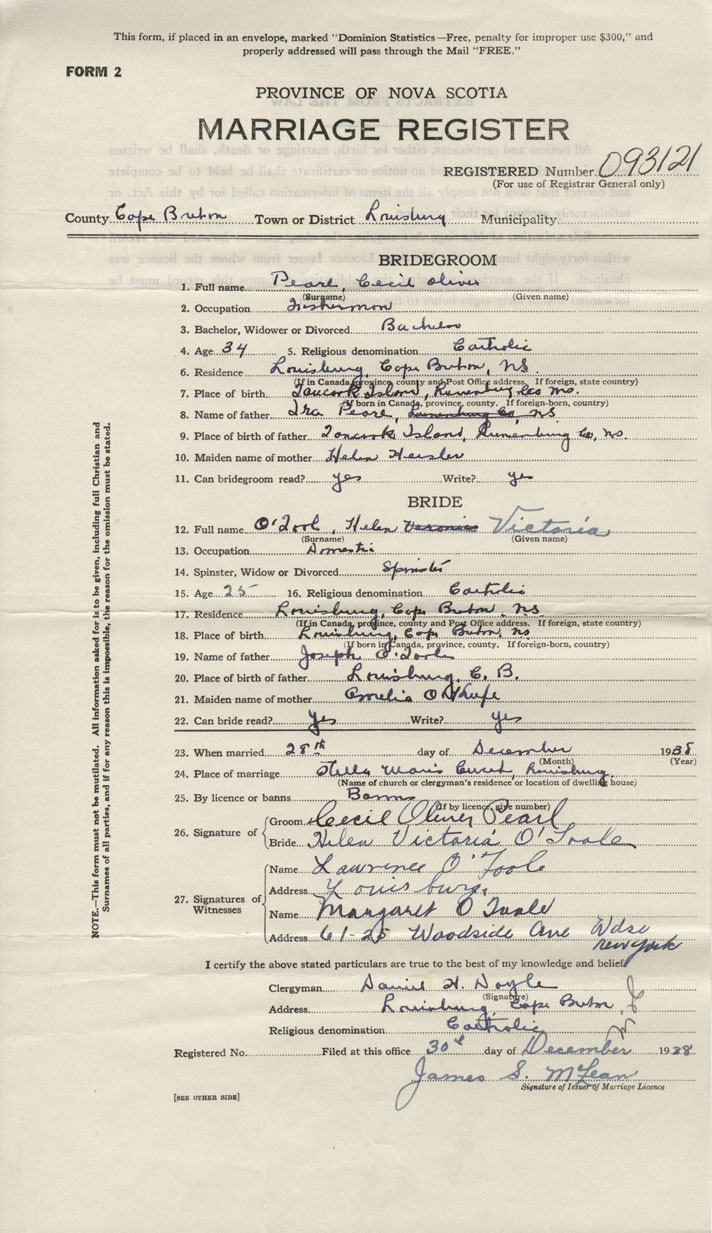 This form, if placed in an envelope, marked "Dominion Statistics—Free, penalty for improper use $300," and
properly addressed will pass through the Mail "FREE."
FORM 2
PROVINCE OF NOVA SCOTIA
MARRIAGE REGISTER
REGISTERED Number 093121
(For use of Registrar General only)
County Cape Breton Town or District Louisburg Municipality
BRIDEGROOM
1. Full name Pearl, Cecil Oliver
(Surname) (Given name)
2. Occupation Fisherman
3. Bachelor, Widower or Divorced Bachelor
4. Age 34 5. Religious denomination Catholic
6. Residence Louisburg, Cape Breton, NS.
(If in Canada, province, county and Post Office address. If foreign, state country)
7. Place of birth Tancook Island, Lunenburg Co NS.
(If born in Canada, province, county. If foreign-born, country)
8. Name of father Ira Pearl, Lunenburg Co, NS
9. Place of birth of father Tancook Island, Lunenburg Co, NS.
10. Maiden name of mother Helen Heisler
11. Can bridegroom read? yes Write? yes
BRIDE
12. Full name O'Tool, Helen Veronica Victoria
(Surname) (Given name)
13. Occupation Domestic
14. Spinster, Widow or Divorced Spinster
15. Age 25 16. Religious denomination Catholic
17. Residence Louisburg, Cape Breton, NS
(If in Canada, province, county and Post Office address. If foreign, state country)
18. Place of birth Louisburg, Cape Breton, NS
(If born in Canada, province, county. If foreign-born, country)
19. Name of father Joseph O'Toole
20. Place of birth of father Louisburg, C. B.
21. Maiden name of mother
22. Can bride read? yes Write? yes
23. When married 28th day of December 1938
(Month) (Year)
24. Place of marriage Stella Maris Church, Louisburg
(Name of church or clergyman's residence or location of dwelling house)
25. By licence or banns Banns
(If by licence, give number)
26. Signature of Groom Cecil Oliver Pearl
Bride Helen Victoria O'Toole
27. Signatures of Witnesses Name Lawrence O'Toole
Address Louisburg,
Name Margaret O Toole
Address 61-25 Woodside Ave Wdse
New York
I certify the above stated particulars are true to the best of my knowledge and belief
Clergyman Daniel H. Doyle
(Signature)
Address Louisburg, Cape Breton
Religious denomination Catholic
Registered No. Filed at this office 30th day of December 1938
James S. McLean
Signature of Issuer of Marriage Licence
[SEE OTHER SIDE]
NOTE.—This form must not be mutilated. All information asked for is to be given, including full Christian and
Surnames of all parties, and if for any reason this is impossible, the reason for the omission must be stated.